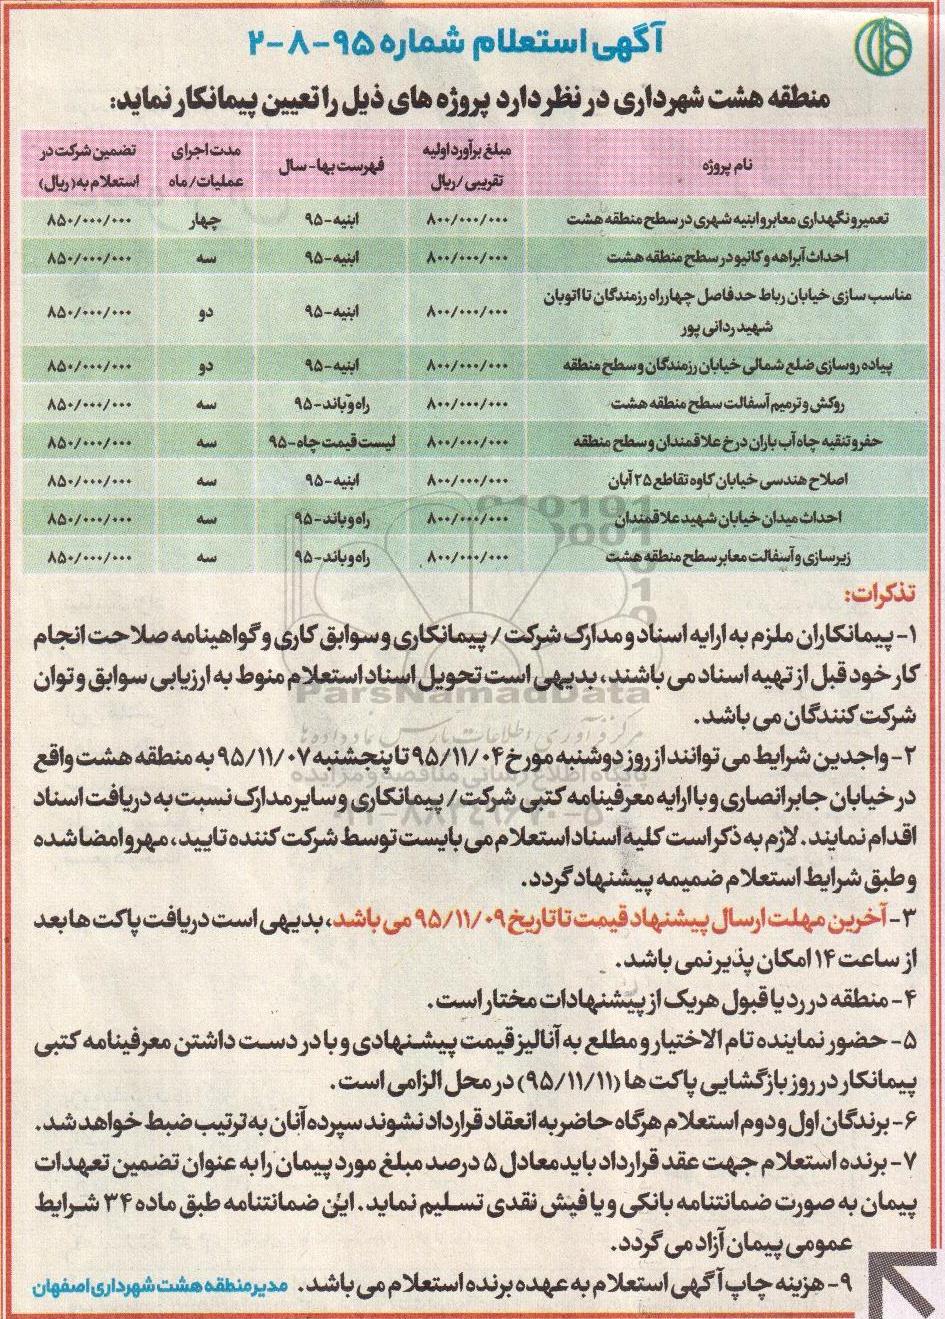 آگهی استعلام شماره ۹۵-۸-۲
منطقه هشت شهرداری در نظر دارد پروژه های ذیل را تعیین پیمانکار نماید:
نام پروژه | مبلغ برآورد اولیه تقریبی/ریال | فهرست بها- سال | مدت اجرای عملیات/ماه | تضمین شرکت در استعلام به(ریال)
تعمیر و نگهداری معابر و ابنیه شهری در سطح منطقه هشت | ۸۰۰/۰۰۰/۰۰۰ | ابنیه-۹۵ | چهار | ۸۵۰/۰۰۰/۰۰۰
احداث آبراهه و کانیو در سطح منطقه هشت | ۸۰۰/۰۰۰/۰۰۰ | ابنیه-۹۵ | سه | ۸۵۰/۰۰۰/۰۰۰
مناسب سازی خیابان رباط حدفاصل چهارراه رزمندگان تا اتوبان شهید ردانی پور | ۸۰۰/۰۰۰/۰۰۰ | ابنیه-۹۵ | دو | ۸۵۰/۰۰۰/۰۰۰
پیاده روسازی ضلع شمالی خیابان رزمندگان و سطح منطقه | ۸۰۰/۰۰۰/۰۰۰ | ابنیه-۹۵ | دو | ۸۵۰/۰۰۰/۰۰۰
روکش و ترمیم آسفالت سطح منطقه هشت | ۸۰۰/۰۰۰/۰۰۰ | راه و باند-۹۵ | سه | ۸۵۰/۰۰۰/۰۰۰
حفر و تنقیه چاه آب باران در خ علاقمندان و سطح منطقه | ۸۰۰/۰۰۰/۰۰۰ | لیست قیمت چاه-۹۵ | سه | ۸۵۰/۰۰۰/۰۰۰
اصلاح هندسی خیابان کاوه تقاطع ۲۵ آبان | ۸۰۰/۰۰۰/۰۰۰ | ابنیه-۹۵ | سه | ۸۵۰/۰۰۰/۰۰۰
احداث میدان خیابان شهید علاقمندان | ۸۰۰/۰۰۰/۰۰۰ | راه و باند-۹۵ | سه | ۸۵۰/۰۰۰/۰۰۰
زیرسازی و آسفالت معابر سطح منطقه هشت | ۸۰۰/۰۰۰/۰۰۰ | راه و باند-۹۵ | سه | ۸۵۰/۰۰۰/۰۰۰
تذکرات:
۱- پیمانکاران ملزم به ارایه اسناد و مدارک شرکت / پیمانکاری و سوابق کاری و گواهینامه صلاحت انجام
کار خود قبل از تهیه اسناد می باشند، بدیهی است تحویل اسناد استعلام منوط به ارزیابی سوابق و توان
شرکت کنندگان می باشد.
۲- واجدین شرایط می توانند از روز دوشنبه مورخ ۹۵/۱۱/۰۴ تا پنجشنبه ۹۵/۱۱/۰۷ به منطقه هشت واقع
در خیابان جابر انصاری و با ارایه معرفینامه کتبی شرکت / پیمانکاری و سایر مدارک نسبت به دریافت اسناد
اقدام نمایند. لازم به ذکر است کلیه اسناد استعلام می بایست توسط شرکت کننده تایید، مهر و امضا شده
و طبق شرایط استعلام ضمیمه پیشنهاد گردد.
۳- آخرین مهلت ارسال پیشنهاد قیمت تا تاریخ ۹۵/۱۱/۰۹ می باشد، بدیهی است دریافت پاکت ها بعد
از ساعت ۱۴ امکان پذیر نمی باشد.
۴- منطقه در رد یا قبول هریک از پیشنهادات مختار است.
۵- حضور نماینده تام الاختیار و مطلع به آنالیز قیمت پیشنهادی و با در دست داشتن معرفینامه کتبی
پیمانکار در روز بازگشایی پاکت ها (۹۵/۱۱/۱۱) در محل الزامی است.
۶- برندگان اول و دوم استعلام هرگاه حاضر به انعقاد قرارداد نشوند سپرده آنان به ترتیب ضبط خواهد شد.
۷- برنده استعلام جهت عقد قرارداد باید معادل ۵ درصد مبلغ مورد پیمان را به عنوان تضمین تعهدات
پیمان به صورت ضمانتنامه بانکی و یا فیش نقدی تسلیم نماید. این ضمانتنامه طبق ماده ۳۴ شرایط
عمومی پیمان آزاد می گردد.
۹- هزینه چاپ آگهی استعلام به عهده برنده استعلام می باشد. مدیر منطقه هشت شهرداری اصفهان
ParsNamadData